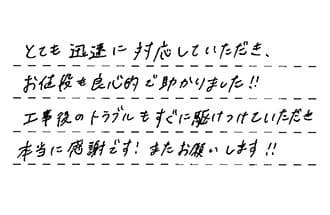 とても迅速に対応していただき、
お値段も良心的で助かりました!!
工事後のトラブルもすぐに駆けつけていただき
本当に感謝です!またお願いします!!